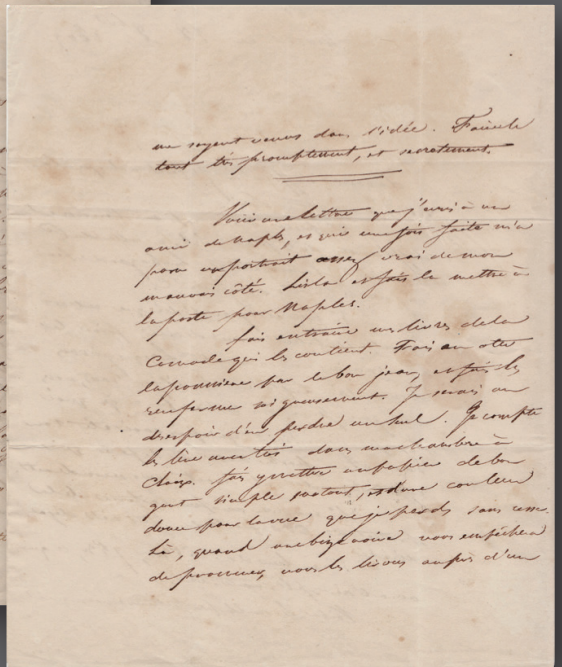 me soyent venus dans l'idée. Faites le
tout très promptement, et secretement.
Voici une lettre que j'écris à un
ami de Naples, et qui une fois faite m'a
paru un portrait assez vrai de mon
mauvais côté. Lis la et fais la mettre à
la poste pour Naples.
fais entretenir mes livres de la
Commode qui les contient. Fais en oter
la poussiere par le bon jean, et fais les
renfermer soigneusement. Je serais au
desespoir d'en perdre un seul. Je compte
les lire avec toi dans ma chambre à
fais y mettre un papier de bon
gout simple surtout, et d'une couleur
douce pour la vue que je perds sans cesse.
Là, quand une bize noire vous empêchera
de promener, nous les lirons auprès d'un